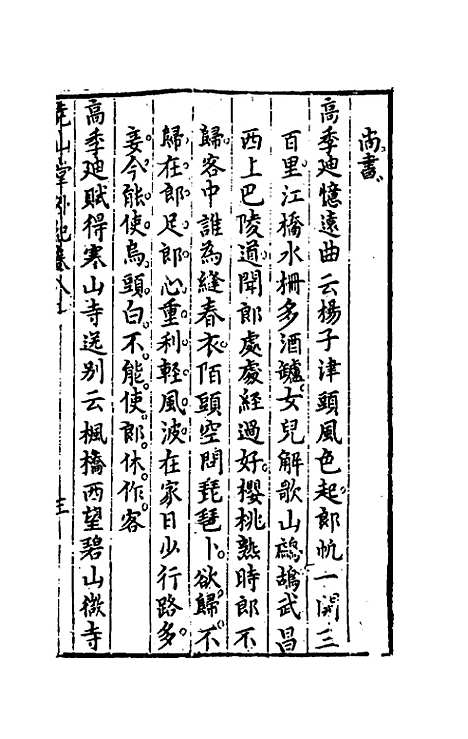 尚書
高季廸憶遠曲云楊子津頭風色起郎帆一開三
百里江橋水柵多酒罏女兒解歌山鷓鴣武昌
西上巴陵道聞郎處處經過好櫻桃熟時郎不
歸客中誰為縫春衣陌頭空問琵琶卜欲歸不
歸在郎足郎心重利輕風波在家日少行路多
妾今能使烏頭白不能使郎休作客
高季廸賦得寒山寺送别云楓橋西望碧山微寺
堯山堂外紀卷八